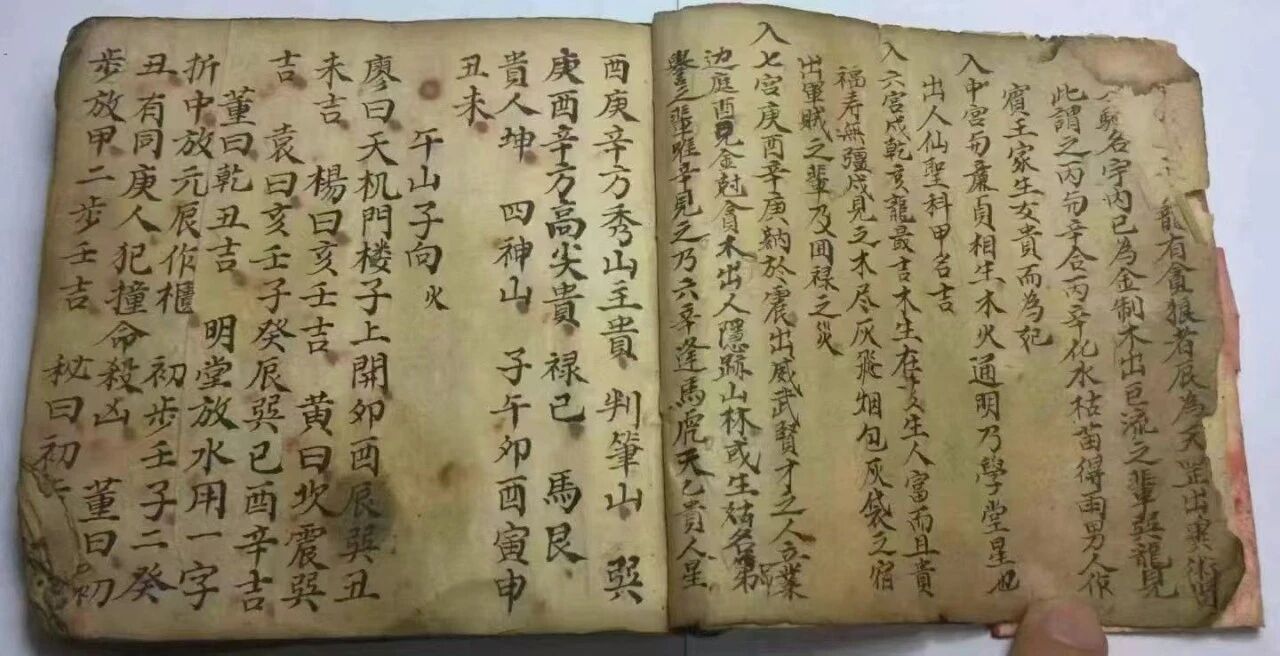 龍有貪狼者辰為天罡出
名宇内已為金制木出巨流之輩巽龍見
此謂之丙旬辛合丙辛化水枯苗得雨男人作
賓王家生女貴而為妃
入中宮而廉貞相生木火通明乃學堂星也
出人仙聖科甲名吉
入六宮戌乾亥龍最吉木生在亥生人富而且貴
福寿無疆戌見之木尽灰飛烟包灰袋之宿
出軍賊之輩乃囬禄之災
入七宮庚酉辛庚納於震出威武賢才之人立業
边庭酉見金尅貪木出人隱跡山林或生姑名第
譽之輩唯辛見之乃六辛逢馬虎天乙貴人星
酉庚辛方秀山主貴 判筆山 巽
庚酉辛方高尖貴 禄己 馬艮
貴人坤 四神山 子午卯酉寅申
丑未
午山子向火
廖曰天机門楼子上開卯酉辰巽丑
未吉 楊曰亥壬吉 黄曰坎震巽
吉 袁曰亥壬子癸辰巽巳酉辛吉
董曰乾丑吉 明堂放水用一字
折中放元辰作櫃 初步壬子二癸
丑有同庚人犯撞命殺凶 董曰初
步放甲二步壬吉 秘曰初